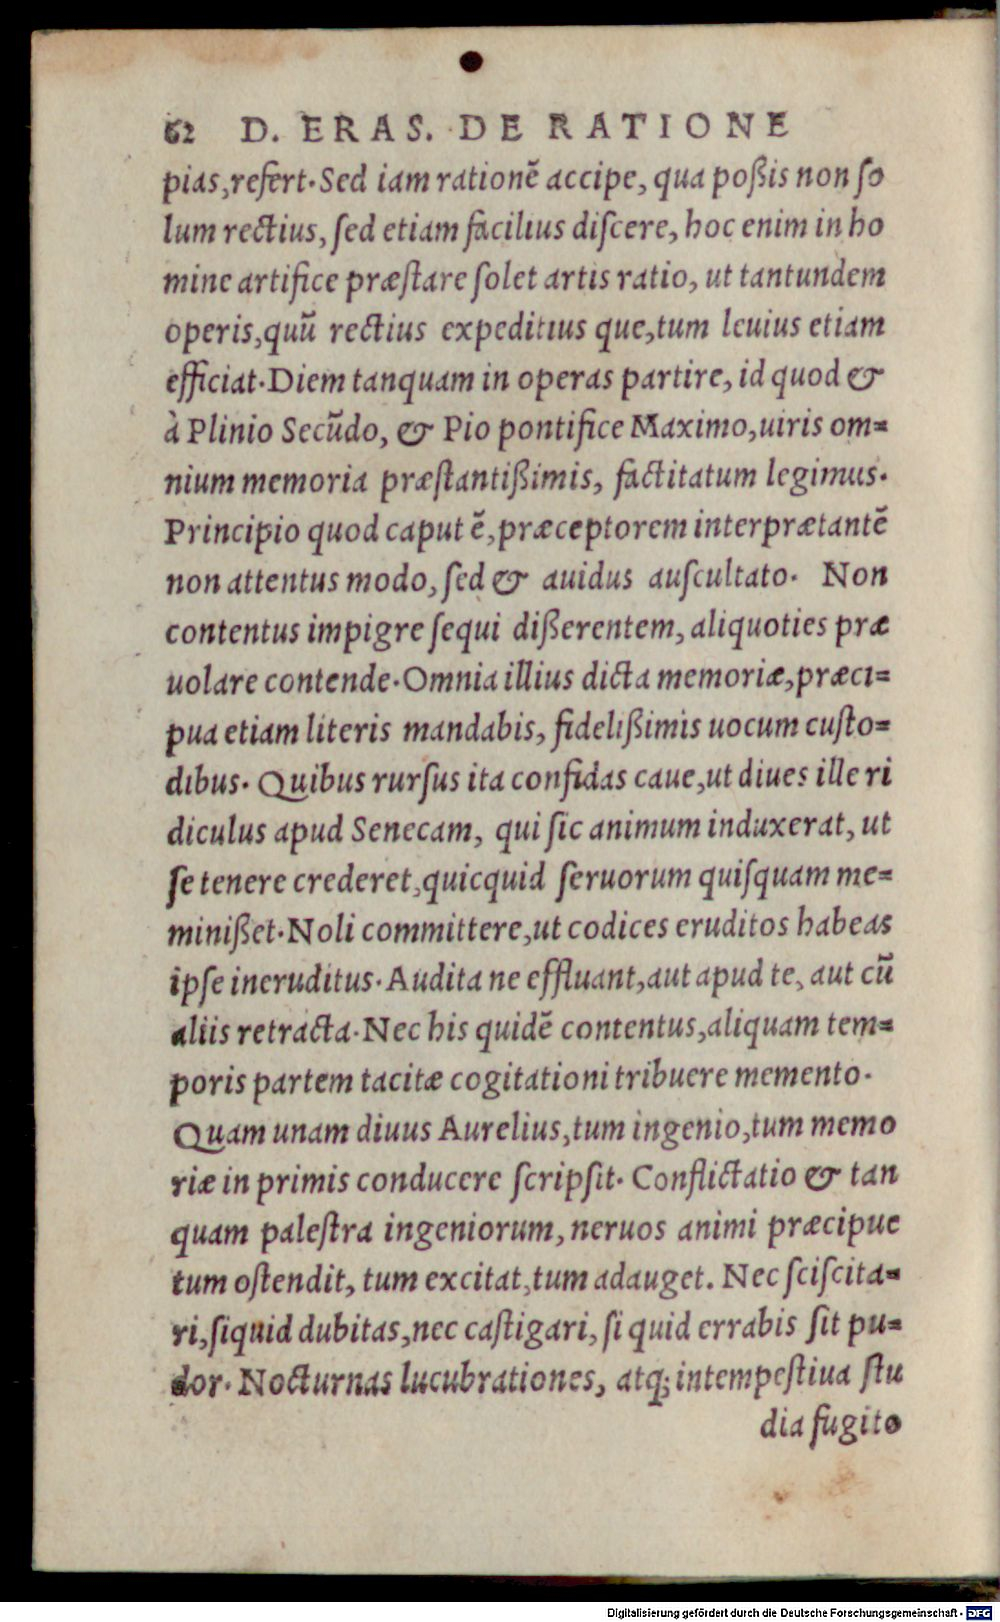 62 D. ERAS. DE RATIONE
pias,refert. Sed iam rationẽ accipe, qua poßis non ſo
lum rectius, ſed etiam facilius diſcere, hoc enim in ho
mine artifice præſtare ſolet artis ratio, ut tantundem
operis,quũ rectius expeditius que,tum leuius etiam
efficiat. Diem tanquam in operas partire, id quod &
à Plinio Secũdo, & Pio pontifice Maximo,uiris om=
nium memoria præſtantißimis, factitatum legimus.
Principio quod caput ẽ,præceptorem interprætantẽ
non attentus modo, ſed & auidus auſcultato. Non
contentus impigre ſequi dißerentem, aliquoties præ
uolare contende. Omnia illius dicta memoriæ,præci=
pua etiam literis mandabis, fidelißimis uocum cuſto=
dibus. Quibus rurſus ita confidas caue,ut diues ille ri
diculus apud Senecam, qui ſic animum induxerat, ut
ſe tenere crederet,quicquid ſeruorum quiſquam me=
minißet. Noli committere,ut codices eruditos habeas
ipſe ineruditus. Audita ne effluant,aut apud te, aut cũ
aliis retracta. Nec his quidẽ contentus,aliquam tem=
poris partem tacitæ cogitationi tribuere memento.
Quam unam diuus Aurelius,tum ingenio,tum memo
riæ in primis conducere ſcripſit. Conflictatio & tan
quam paleſtra ingeniorum, neruos animi præcipue
tum oſtendit, tum excitat,tum adauget. Nec ſciſcita=
ri,ſiquid dubitas,nec caſtigari, ſi quid errabis ſit pu=
dor. Nocturnas lucubrationes, atq; intempeſtiua ſtu
dia fugito
Digitalisierung gefördert durch die Deutsche Forschungsgemeinschaft - DFG